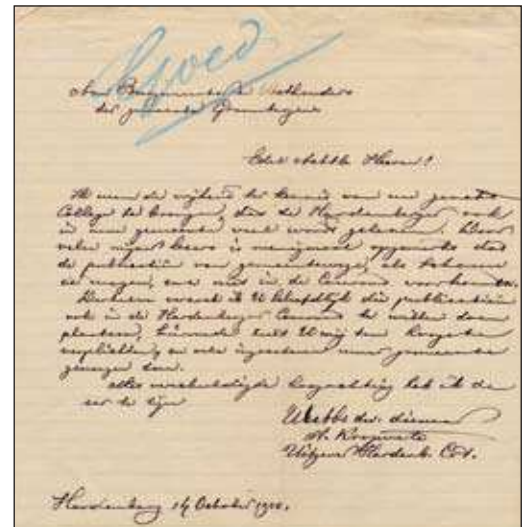 Goed
Aan Burgemeester en Wethouders
der gemeente Gramsbergen
Edel Achtb Heeren!
Ik neem de vrijheid ter kennis van uw geacht
College te brengen, dat de Hardenberger ook
in uw gemeente veel wordt gelezen. Door
vele uwer is opgemerkt dat
de publicatie van gemeentewege, als
niet in de Courant voorkomen.
verzoek ik U beleefdelijk die publicatien
ook in de Hardenberger Courant te willen doen
plaatsen, U mij ten hoogste
en vele ingezetenen uwer gemeente
genoegen doen.
hoogachting heb ik de
eer te zijn
UEdAchtb dw. dienaar
Uitgever Hardenb. Crt.
Hardenberg 14 October 1910.